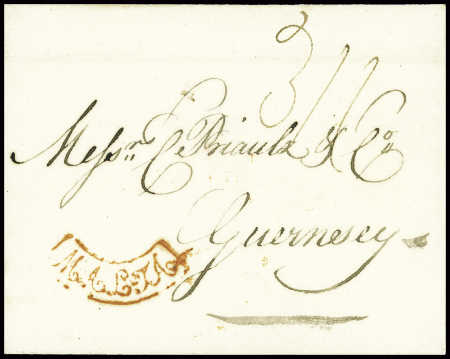 3/4
Messrs C. Priaulx & Co
Guernsey
MALTA